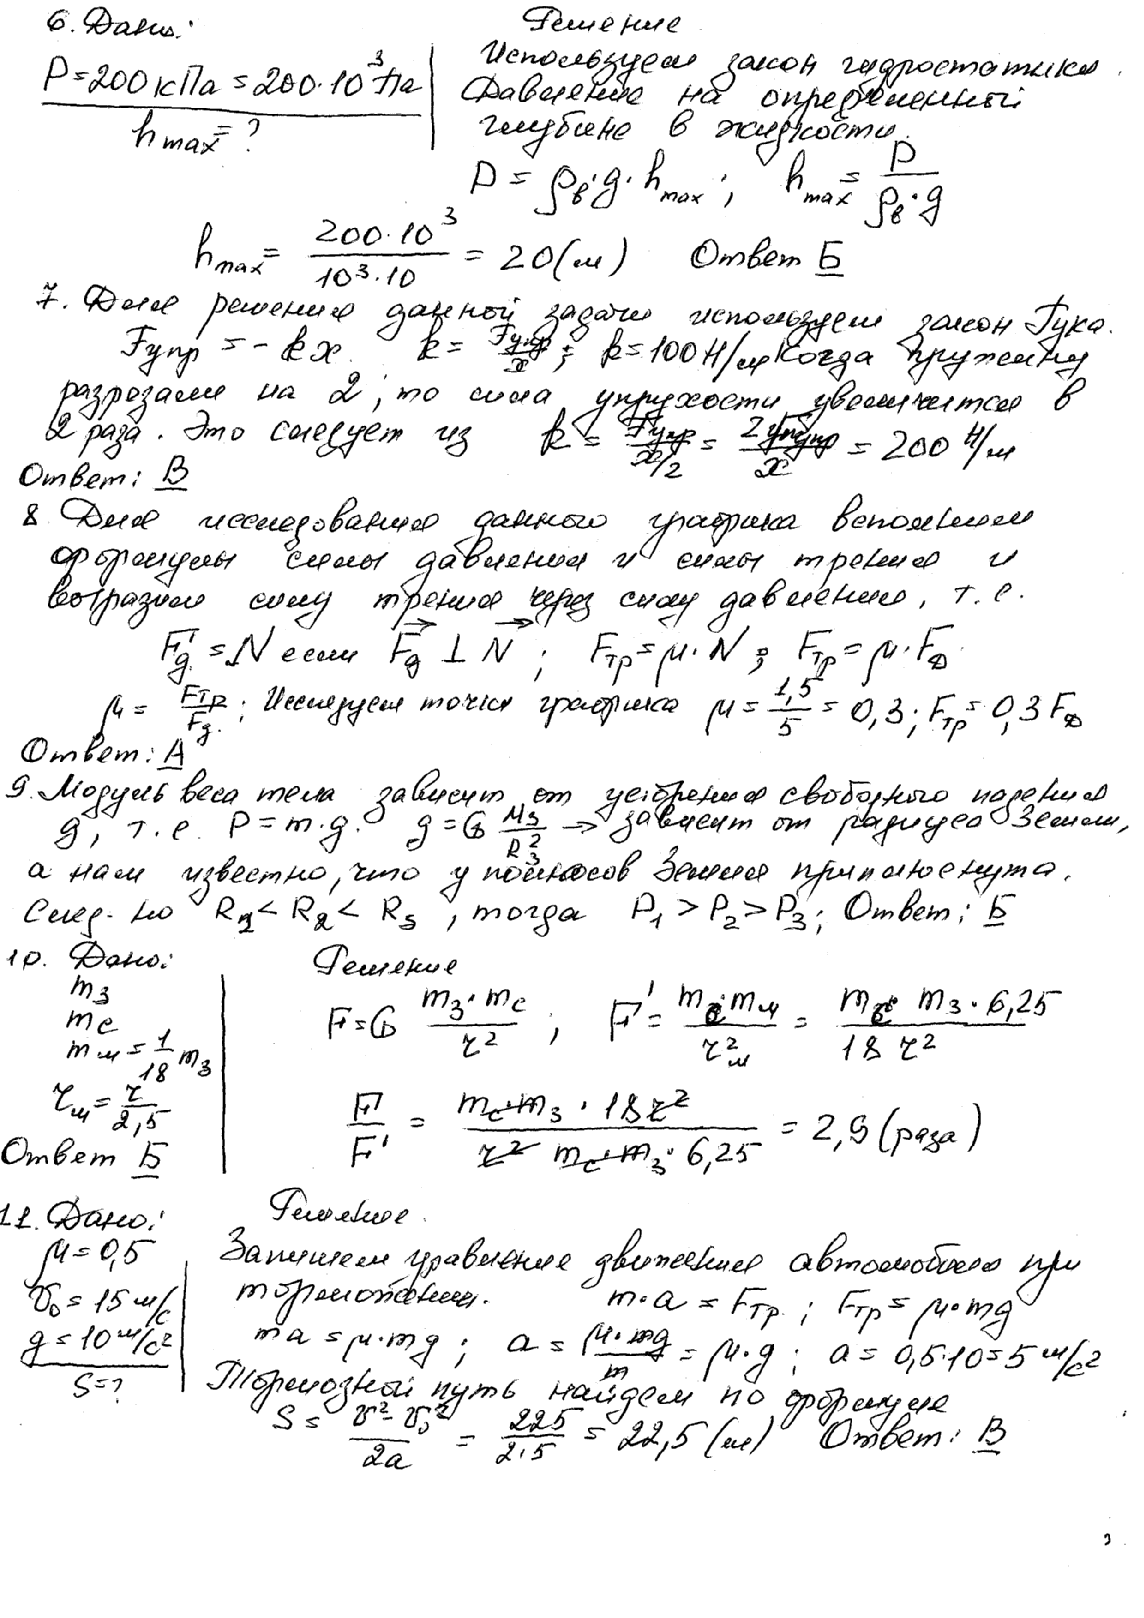 6. Дано:
P = 200 кПа = 200·10³ Па
h max = ?
Решение
Используем закон гидростатики.
Давление на определенной
глубине в жидкости.
P = ρв·g·h max; h max = P / ρв·g
h max = 200·10³ / 10³·10 = 20 (м) Ответ Б
7. Для решения данной задачи используем закон Гука.
Fупр = -kx k = Fупр / x; k = 100 Н/м Когда пружину
разрезали на 2, то сила упругости увеличится в
2 раза. Это следует из k = Fупр / x/2 = 2Fупр / x = 200 Н/м
Ответ: В
8 Для исследования данного графика вспомним
формулы силы давления и силы трения и
выразим силу трения через силу давления, т.е.
Fд = N если Fд ⊥ N; Fтр = μ·N; Fтр = μ·Fд
μ = Fтр / Fд; Исследуем точки графика μ = 1,5 / 5 = 0,3; Fтр = 0,3 Fд
Ответ: А
9. Модуль веса тела зависит от ускорения свободного падения
g, т.е. P = m·g. g = G Mз / Rз² → зависит от радиуса Земли,
а нам известно, что у полюсов Земля приплюснута.
След-но R1 < R2 < R3, тогда P1 > P2 > P3; Ответ: Б
10. Дано:
mз
mс
mм = 1/18 mз
rм = r / 2,5
Ответ Б
Решение
F = G mз·mс / r²; F' = mс·mм / rм² = mс mз·6,25 / 18 r²
F / F' = mс·mз·18r² / r² mс·mз·6,25 = 2,9 (раза)
11. Дано:
μ = 0,5
v₀ = 15 м/с
g = 10 м/с²
S = ?
Решение.
Запишем уравнение движения автомобиля при
торможении. m·a = Fтр; Fтр = μ·mg
ma = μ·mg; a = μ·mg / m = μ·g; a = 0,5·10 = 5 м/с²
Тормозной путь найдем по формуле
S = v² - v₀² / 2a = 225 / 2·5 = 22,5 (м) Ответ: В